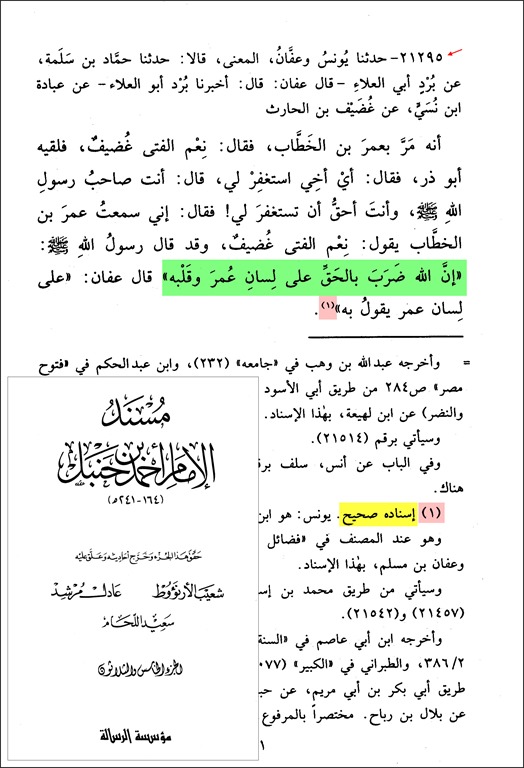 ٢١٢٩٥- حدثنا يُونسُ وعفَّانُ، المعنى، قالا: حدثنا حمَّاد بن سَلَمة،
عن بُرْدٍ أبي العلاءِ -قال عفان: قال: أخبرنا بُرْد أبو العلاء- عن عبادة
ابن نُسَيٍّ، عن غُضَيْف بن الحارث
أنه مَرَّ بعمرَ بن الخَطَّاب، فقال: نِعْم الفتى غُضيفٌ، فلقيه
أبو ذر، فقال: أيْ أخِي استغفِرْ لي، قال: أنت صاحبُ رسولِ
اللهِ ﷺ، وأنتَ أحقُّ أن تستغفرَ لي! فقال: إني سمعتُ عمرَ بن
الخطَّاب يقول: نِعْم الفتى غُضيفٌ، وقد قال رسولُ اللهِ ﷺ:
«إنَّ الله ضَرَبَ بالحَقِّ على لِسانِ عُمرَ وقَلْبه» قال عفان: «على
لِسان عمر يقولُ به»(١).
= وأخرجه عبدالله بن وهب في «جامعه» (٢٣٢)، وابن عبد الحكم في «فتوح
مصر» ص٢٨٤ من طريق أبي الأسود
والنضر) عن ابن لهيعة، بهٰذا الإسناد.
وسيأتي برقم (٢١٥١٤).
وفي الباب عن أنس، سلف
هناك.
(١) إسناده صحيح. يونس: هو
وهو عند المصنف في «فضائل
وعفان بن مسلم، بهٰذا الإسناد.
وسيأتي من طريق محمد بن
(٢١٤٥٧) و(٢١٥٤٢).
وأخرجه ابن أبي عاصم في
٣٨٦/٢، والطبراني في «الكبير»
طريق أبي بكر بن أبي مريم، عن
عن بلال بن رباح. مختصراً بالمرفوع
١
مُسْنَدُ
الإِمَامِ أَحْمَدَ بْنِ حَنْبَلٍ
(١٦٤-٢٤١هـ)
حَقَّقَ هذَا الجُزْءَ وَخَرَّجَ أَحَادِيثَهُ وَعَلَّقَ عَلَيْهِ
شُعَيْب الأرنؤوط عَادِل مُرْشِد
سَعِيد اللَّحَام
الجزء الخامس والثلاثون
مؤسسة الرسالة